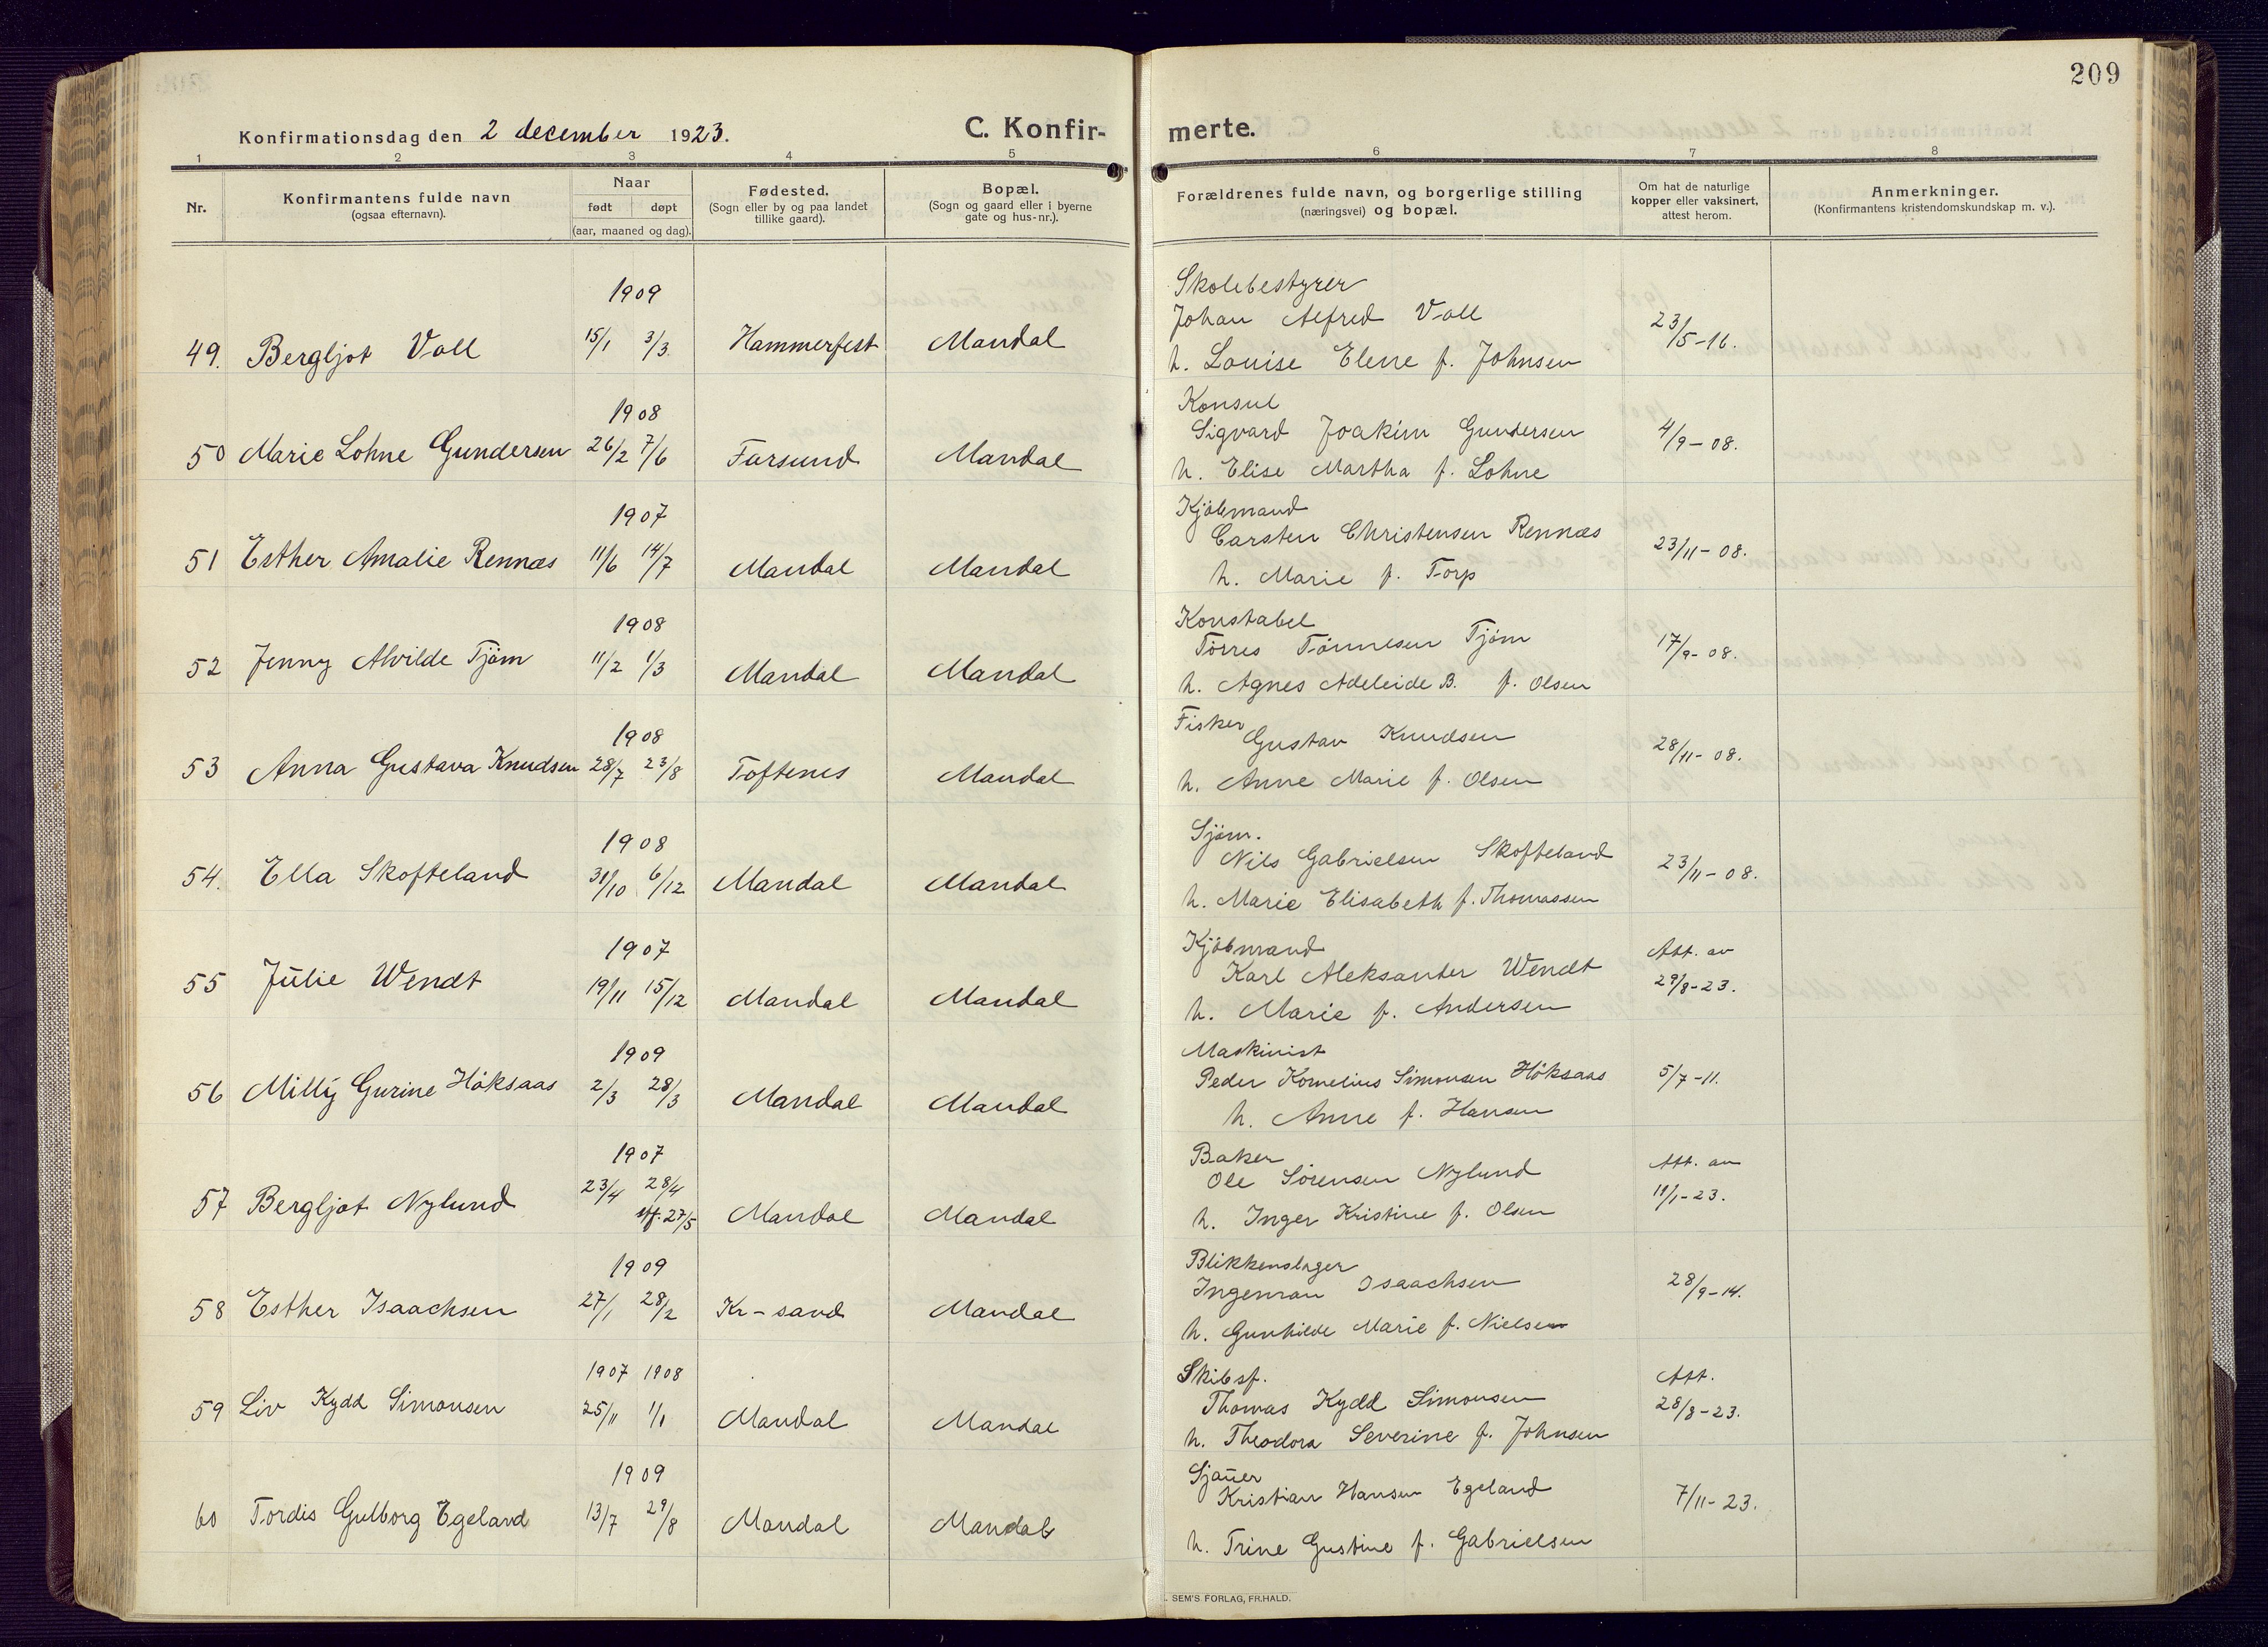 209
Konfirmationsdag den 2 december 1923.
C. Konfirmerte.
1 2 3 4 5 6 7 8
Nr.
Konfirmantens fulde navn
(ogsaa efternavn).
Naar
født døpt
(aar, maaned og dag).
Fødested.
(Sogn eller by og paa landet
tillike gaard).
Bopæl.
(Sogn og gaard eller i byerne
gate og hus-nr.).
Forældrenes fulde navn, og borgerlige stilling
(næringsvei) og bopæl.
Om hat de naturlige
kopper eller vaksinert,
attest herom.
Anmerkninger.
(Konfirmantens kristendomskundskap m. v.).
1909
Skolebestyrer
Johan Alfred Voll
49. Bergljot Voll 15/1 3/3. Hammerfest Mandal 23/5-16.
h. Louise Elene f. Johnsen
1908
Konsul
Sigvard Joakim Gundersen
50 Marie Lohne Gundersen 26/2 7/6 Farsund Mandal 4/9-08.
h. Elise Martha f. Lohne
1907
Kjöbmand
Carsten Christensen Rennæs
51 Esther Amalie Rennæs 11/6 14/7 Mandal Mandal 23/11-08.
h. Marie f. Torp
1908
Konstabel
Torres Tönnesen Tjöm
52 Jenny Alvilde Tjöm 11/2 1/3 Mandal Mandal 17/9-08.
h. Agnes Adeleide B. f. Olsen
1908
Fisker
Gustav Knudsen
53 Anna Gustava Knudsen 28/7 23/8 Toftenes Mandal 28/11-08.
h. Anne Marie f. Olsen
1908
Sjöm.
Nils Gabrielsen Skofteland
54. Ella Skofteland 31/10 6/12 Mandal Mandal 23/11-08.
h. Marie Elisabeth f. Thomassen
1907
Kjöbmand
Karl Aleksander Wendt
55 Julie Wendt 19/11 15/12 Mandal Mandal Att. av 29/8-23.
h. Marie f. Andersen
1909
Maskinist
Peder Kornelius Simonsen Höksaas
56 Milly Gurine Höksaas 2/3 28/3 Mandal Mandal 5/7-11.
h. Anne f. Hansen
1907
Baker
Ole Sörensen Nylund
57 Bergljot Nylund 23/4 28/4 stf. 27/5 Mandal Mandal Att. av 11/1-23.
h. Inger Kristine f. Olsen
1909
Blikkenslager
Ingeman Isaachsen
58 Esther Isaachsen 27/1 28/2 Kr-sand Mandal 28/9-14.
h. Gunhilde Marie f. Nielsen
1907 1908
Skibsf.
Thomas Kydd Simonsen
59 Liv Kydd Simonsen 25/11 1/1 Mandal Mandal Att. 28/8-23.
h. Theodora Severine f. Johnsen
1909
Sjauer
Kristian Hansen Egeland
60 Tordis Gulborg Egeland 13/7 29/8 Mandal Mandal 7/11-23.
h. Trine Gustine f. Gabrielsen
SEM'S FORLAG, FR.HALD.